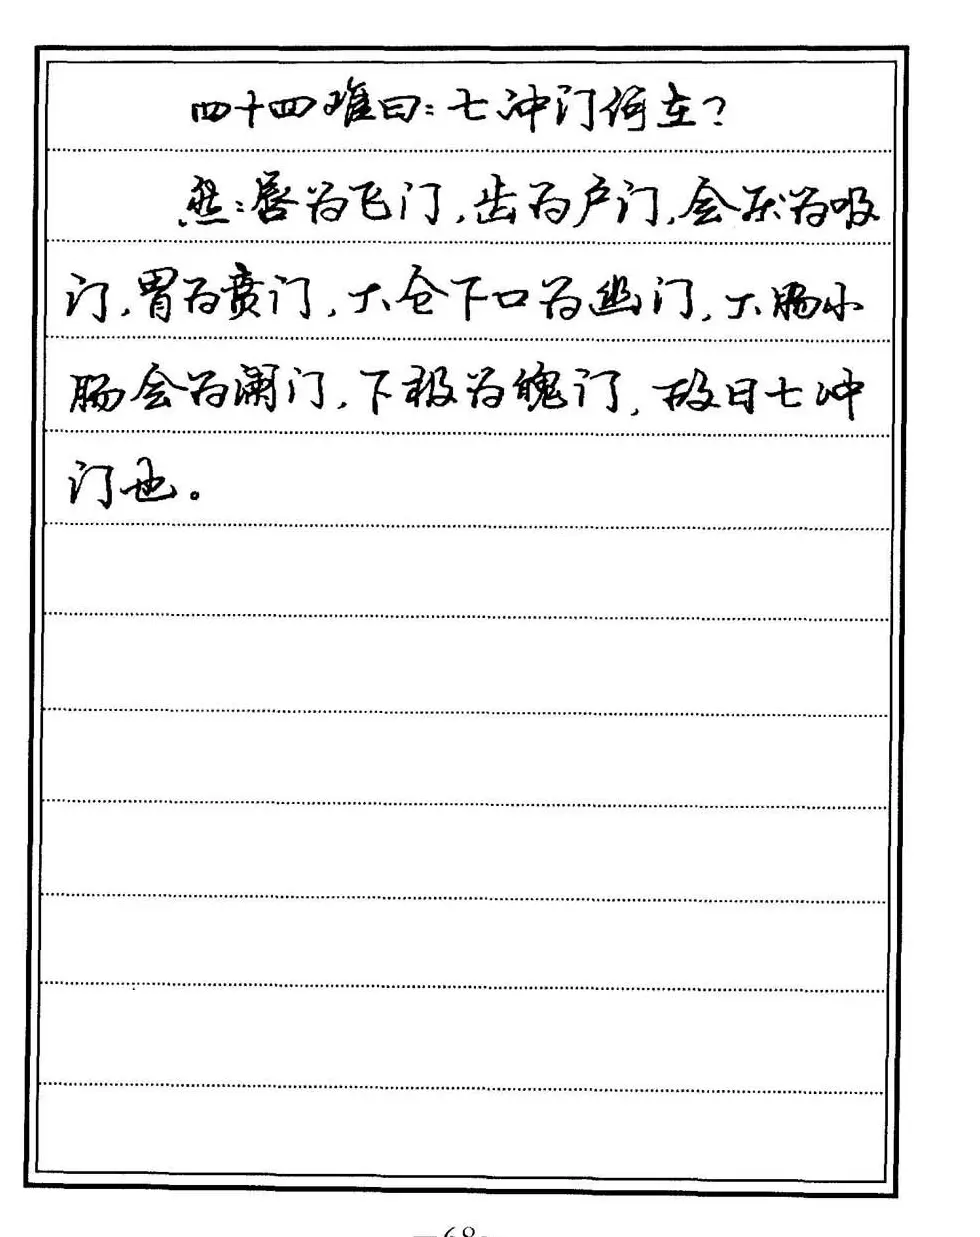 四十四难曰:七冲门何在?
然:唇为飞门,齿为户门,会厌为吸
门,胃为贲门,大仓下口为幽门,大肠小
肠会为阑门,下极为魄门,故曰七冲
门也。
—68—